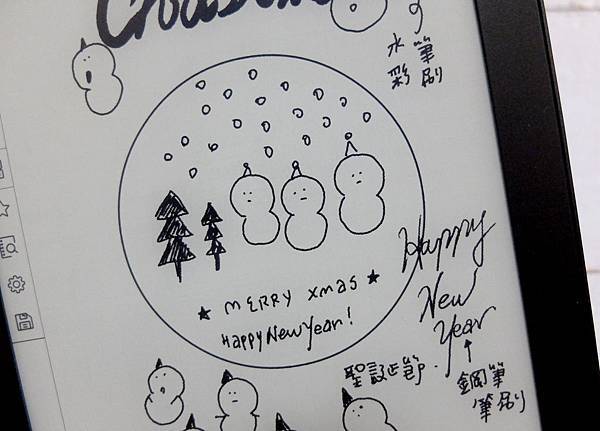 水彩
筆刷
MERRY xmas
HAPPY New Year!
Happy
New
Year
聖誕節.
鋼筆
筆刷